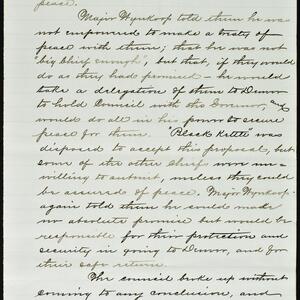 peace.
Major Wynkoop told them he was
not empowered to make a treaty of
peace with them; that he was not
'big Chief enough', but that, if they would
do as they had promised - he would
take a delegation of them to Denver
to hold Council with the Governor, and
would do all in his power to secure
peace for them. 'Black Kettle' was
disposed to accept this proposal, but
some of the other Chiefs were un-
willing to submit, unless they could
be assured of peace. Major Wynkoop
again told them he could make
no absolute promise but would be
responsible for their protection and
security in going to Denver, and for
their safe return.
The council broke up without
coming to any conclusion, and